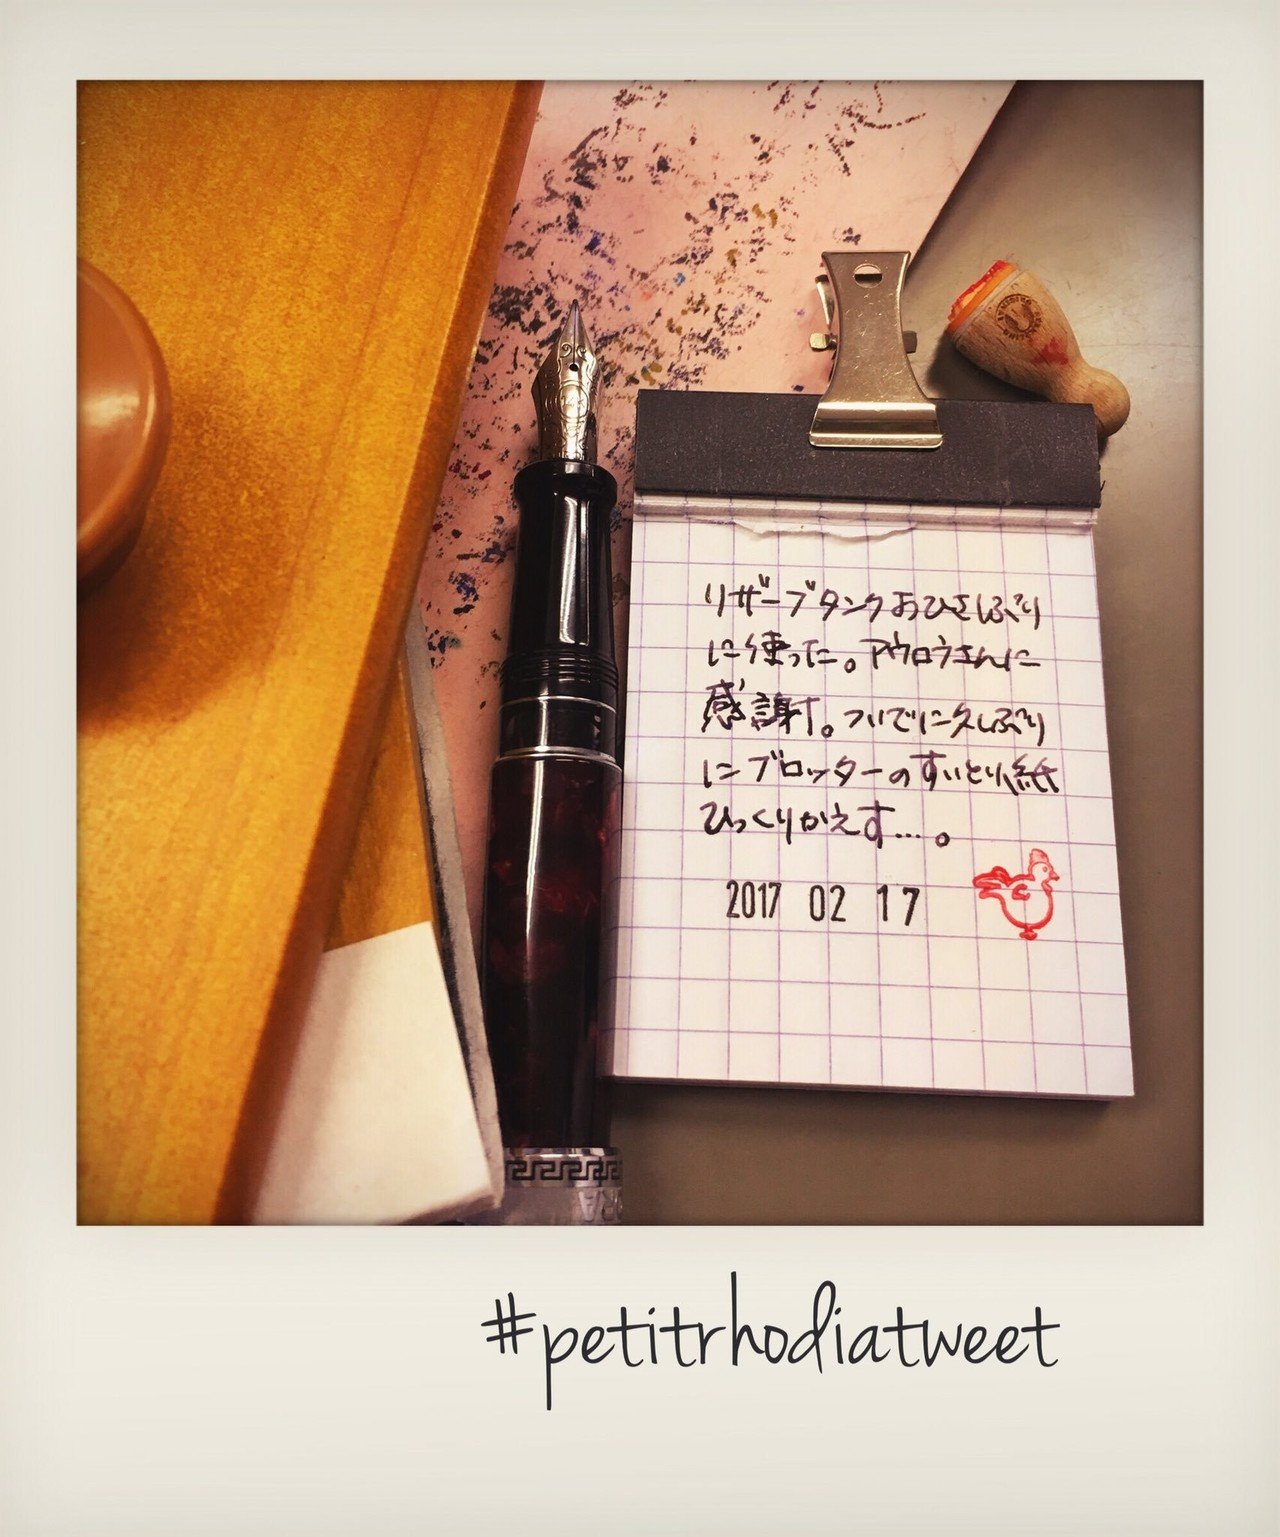 リザーブタンクおひさしぶり
に使った。アウロラさんに
感謝。ついでに久しぶり
にブロッターのすいとり紙
ひっくりかえす…。
2017 02 17
#petitrhodiatweet